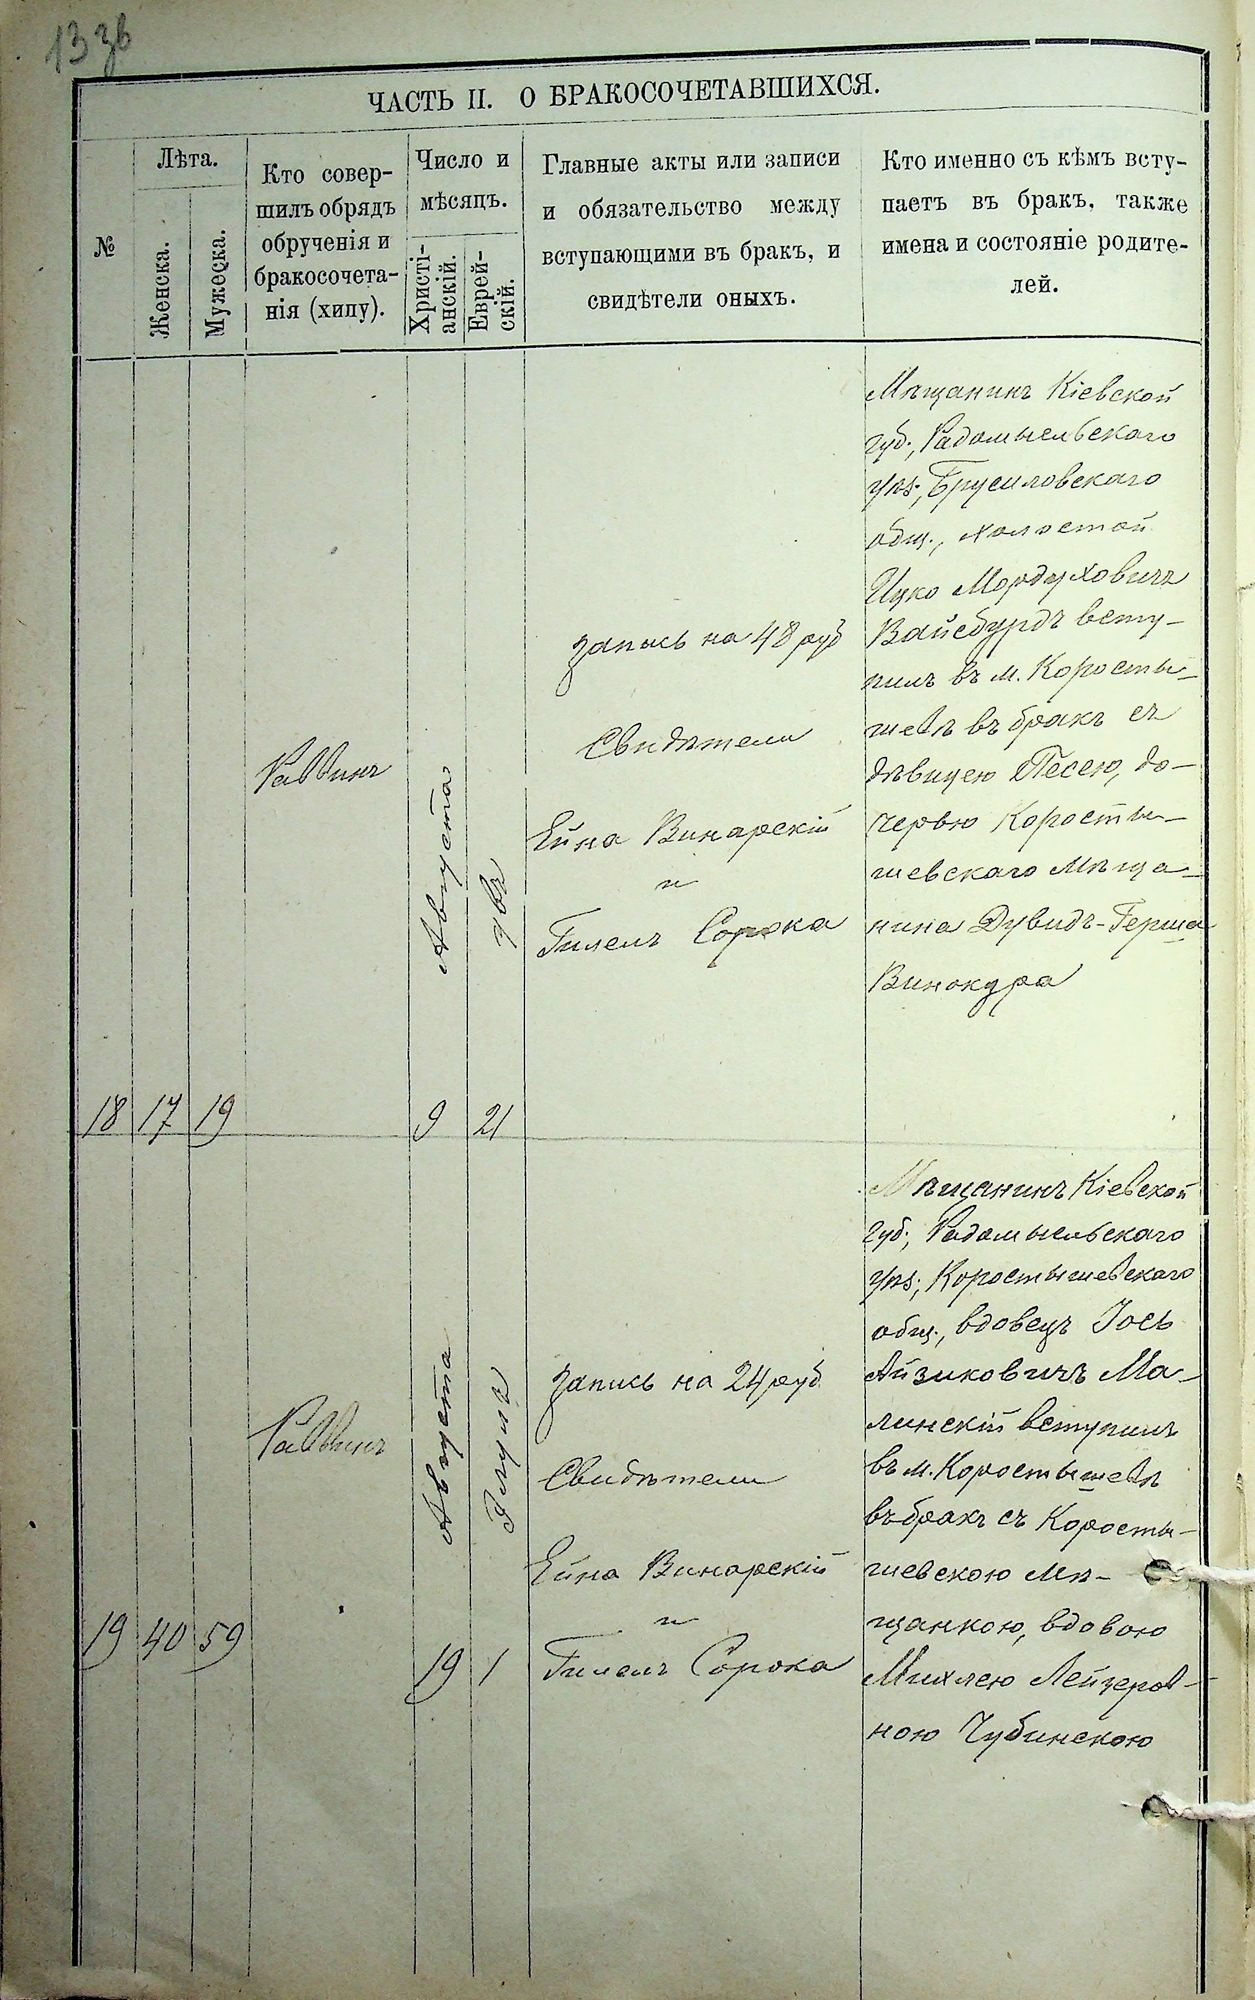 13 зв
ЧАСТЬ II. О БРАКОСОЧЕТАВШИХСЯ.
№
Лѣта.
Женска.
Мужеска.
Кто совер-
шилъ обрядъ
обрученія и
бракосочета-
нія (хипу).
Число и
мѣсяцъ.
Христі-
анскій.
Еврей-
скій.
Главные акты или записи
и обязательство между
вступающими въ бракъ, и
свидѣтели оныхъ.
Кто именно съ кѣмъ всту-
паетъ въ бракъ, также
имена и состояніе родите-
лей.
18
17
19
Раввинъ
Августа
9
21
запись на 48 руб
Свидѣтели
Ейна Винарскій
и
Гилелъ Сорока
Мѣщанинъ Кіевской
губ., Радомысльскаго
уѣз., Брусиловскаго
общ., холостой
Ицко Мордуховичъ
Вайсбурдъ всту-
пилъ въ м. Коросты-
шевѣ въ бракъ съ
дѣвицею Песею, до-
черью Коросты-
шевскаго мѣща-
нина Дувидъ-Герша
Винокура
19
40
59
Раввинъ
Августа
19
1
запись на 24 руб
Свидѣтели
Ейна Винарскій
и
Гилелъ Сорока
Мѣщанинъ Кіевской
губ., Радомысльскаго
уѣз., Коростышевскаго
общ., вдовецъ Іось
Айзиковичъ Ма-
линскій вступилъ
въ м. Коростышевѣ
въ бракъ съ Коросты-
шевскою мѣ-
щанкою, вдовою
Михлею Лейзеров-
ною Чубинскою